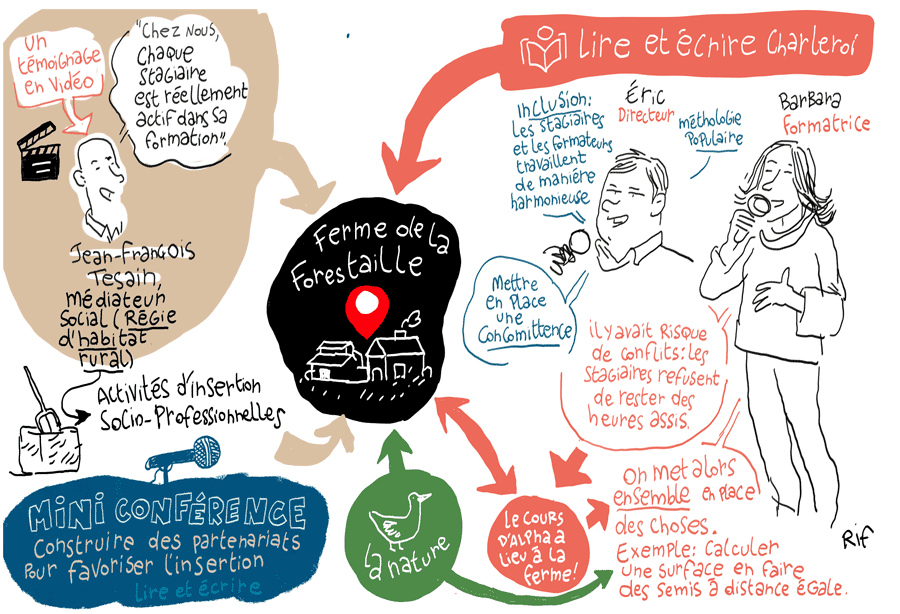 Un
témoignage
en vidéo
"Chez nous,
chaque
stagiaire
est réellement
actif dans sa
formation".
Jean-François
Tesain,
médiateur
social (Régie
d'habitat
rural)
Activités d'insertion
socio-professionnelles
MINI CONFÉRENCE
Construire des partenariats
pour favoriser l'insertion
Lire et écrire
Ferme de la
Forestaille
la nature
Lire et écrire Charleroi
Inclusion:
les stagiaires
et les formateurs
travaillent
de manière
harmonieuse
Éric
Directeur
méthologie
populaire
Barbara
Formatrice
Mettre
en place
une
concomittence
il y avait risque
de conflits: les
stagiaires refusent
de rester des
heures assis.
On met alors
ensemble en place
des choses.
Exemple: calculer
une surface en faire
des semis à distance égale.
Le cours
d'alpha à
lieu à la
ferme!
Rif